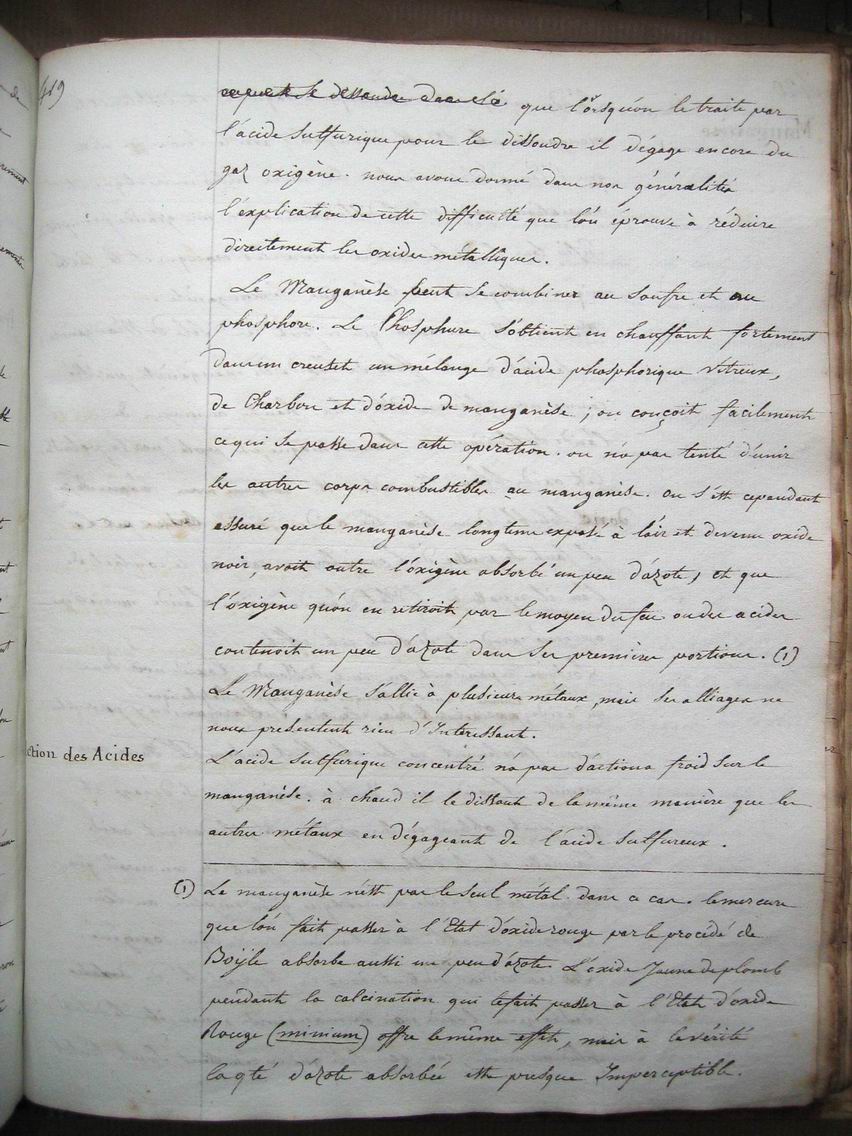 419
que lorsqu'on le traite par
l'acide sulfurique pour le dissoudre il dégage encore du
gaz oxigène. nous avons donné dans nos généralités
l'explication de cette difficulté que l'on éprouve à réduire
directement les oxides métalliques.
Le Manganèse peut se combiner au soufre et au
phosphore. Le Phosphure s'obtient en chauffant fortement
dans un creuset un mélange d'acide phosphorique vitreux,
de Charbon et d'oxide de manganèse ; on conçoit facilement
ce qui se passe dans cette opération. on n'a pas tenté d'unir
les autres corps combustibles au manganèse. on s'est cependant
assuré que le manganèse longtems exposé à l'air et devenu oxide
noir, avoit outre l'oxigène absorbé un peu d'azote, et que
l'oxigène qu'on en retiroit par le moyen du feu ou des acides
contenoit un peu d'azote dans ses premières portions. (1)
Le Manganèse s'allie à plusieurs métaux, mais ses alliages ne
nous présentent rien d'Intéressant.
ction des Acides
L'acide sulfurique concentré n'a pas d'action à froid sur le
manganèse. à chaud il le dissout de la même manière que les
autres métaux en dégageant de l'acide sulfureux.
(1) Le manganèse n'est pas le seul métal dans ce cas. le mercure
que l'on fait passer à l'Etat d'oxide rouge par le procédé de
Boÿle absorbe aussi un peu d'azote. L'oxide Jaune de plomb
pendant la calcination qui le fait passer à l'Etat d'oxide
Rouge (minium) offre le même effet, mais à la vérité
la qté d'azote absorbée est presque Imperceptible.